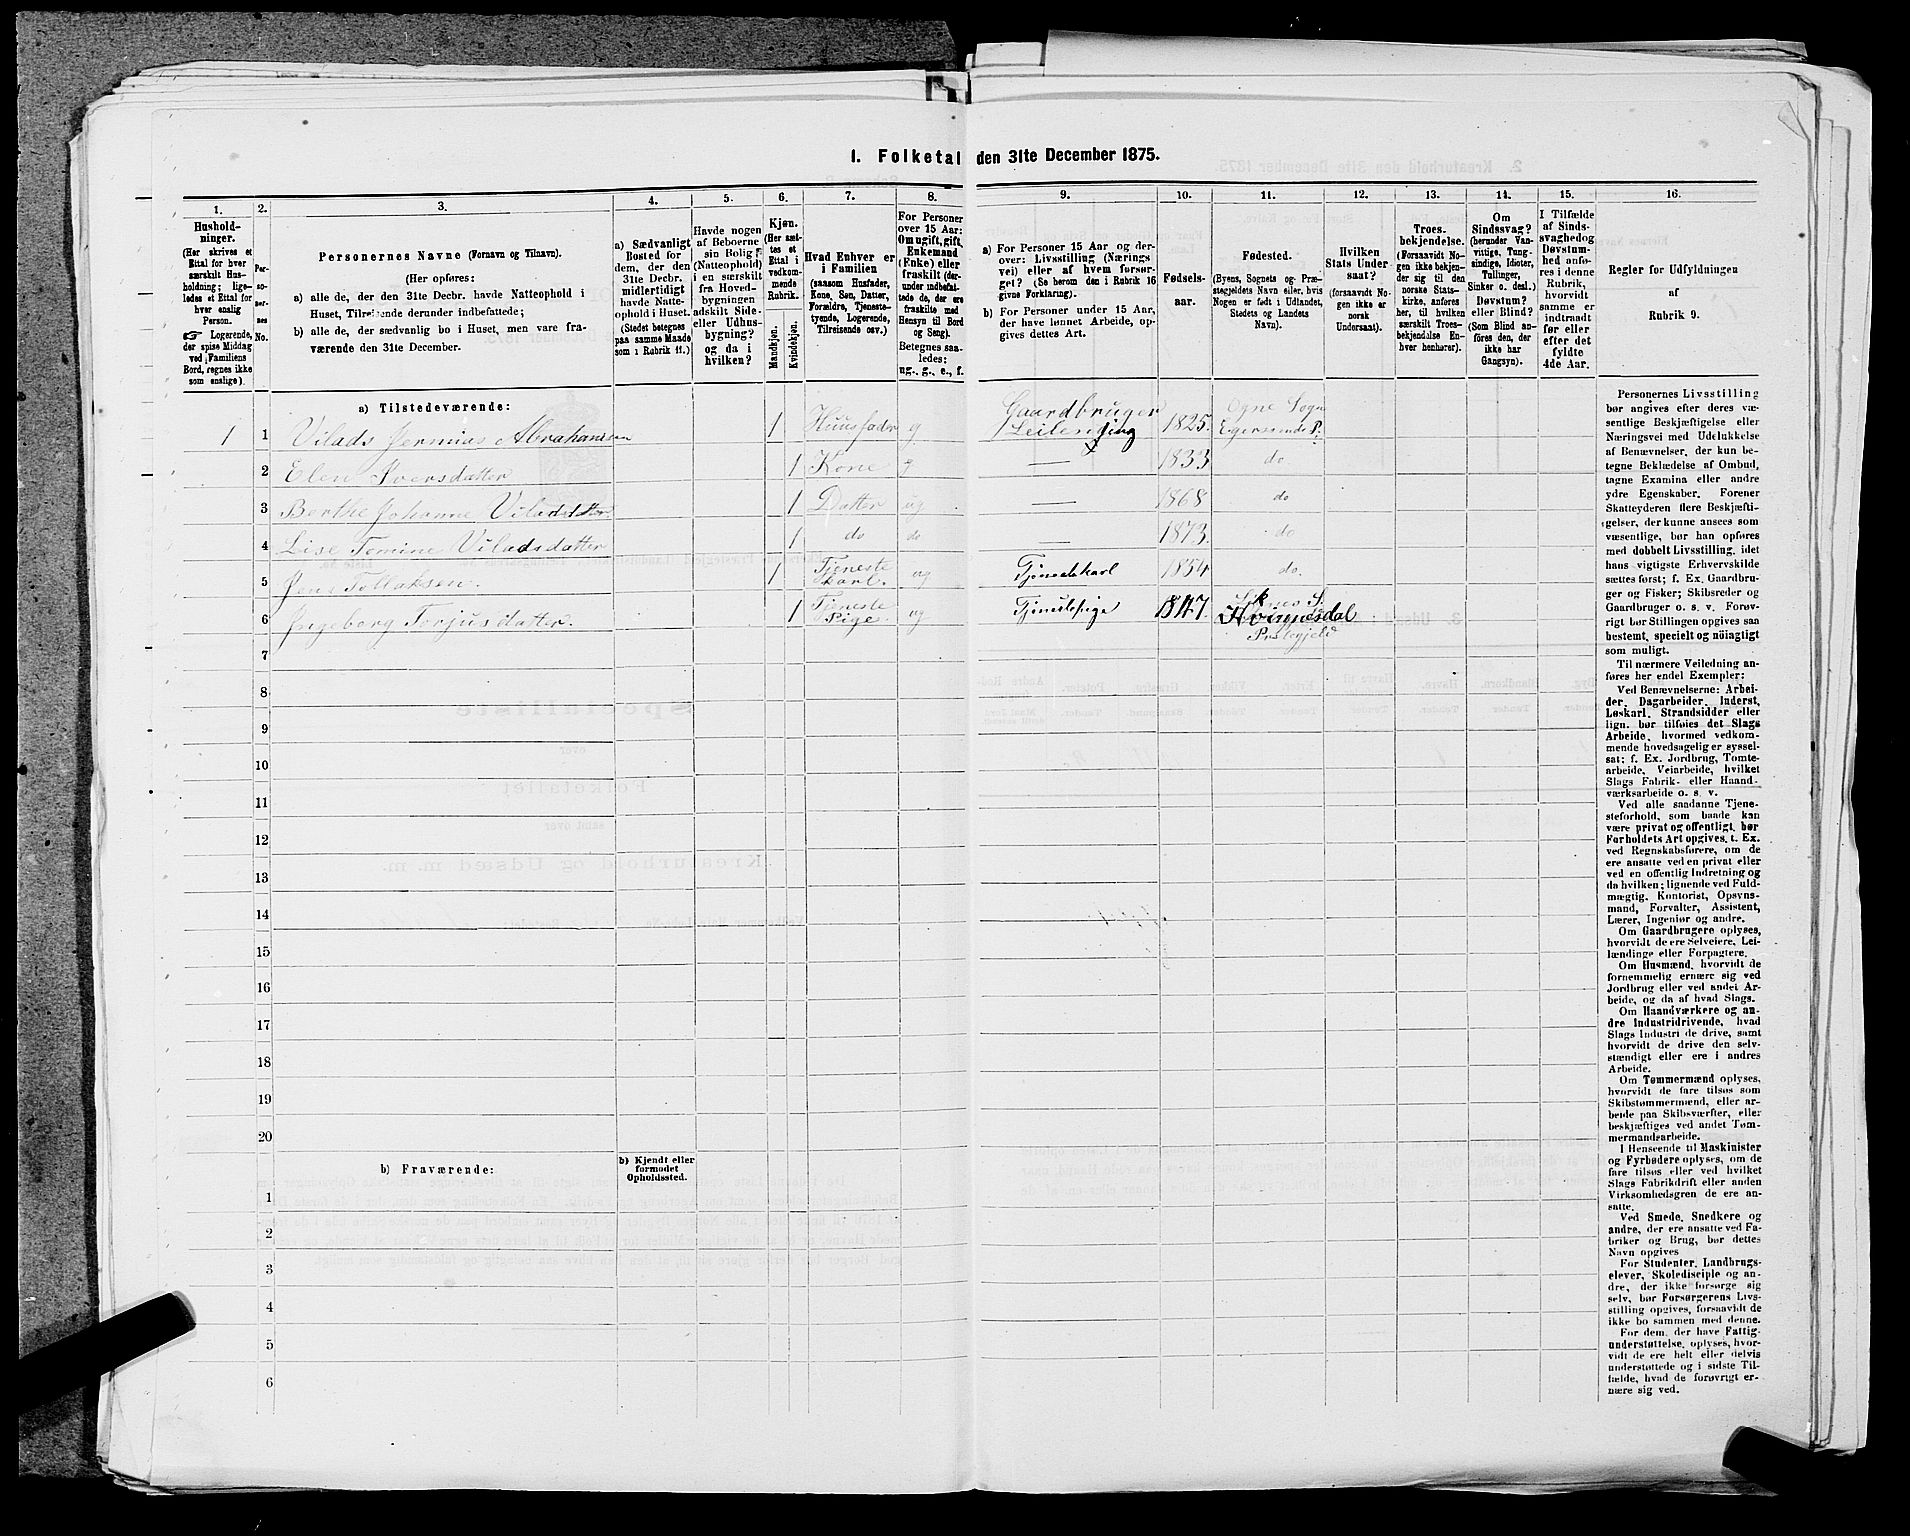 1. Folketal den 31te December 1875.
1. 2. 3. 4. 5. 6. 7. 8. 9. 10. 11. 12. 13. 14. 15. 16.
Hushold-
ninger.
(Her skrives et
Ettal for hver
særskilt Hus-
holdning; lige-
ledes et Ettal for
hver enslig
Person.
☞ Logerende,
der spise Middag
ved Familiens
Bord, regnes ikke
som enslige).
Per-
so-
ner-
nes
No.
Personernes Navne (Fornavn og Tilnavn).
(Her opføres:
a) alle de, der den 31te Decbr. havde Natteophold i
Huset, Tilreisende derunder indbefattede;
b) alle de, der sædvanlig bo i Huset, men vare fra-
værende den 31te December.
a) Sædvanligt
Bosted for
dem, der den
31te Decbr.
midlertidigt
havde Natte-
ophold i Huset.
(Stedet betegnes
paa samme Maade
som i Rubrik 11.)
Havde nogen
af Beboerne
sin Bolig
(Natteophold)
i en særskilt
fra Hoved-
bygningen
adskilt Side-
eller Udhus-
bygning?
og da i
hvilken?
Kjøn.
(Her sæt-
tes et
Ettal i
vedkom-
mende
Rubrik.)
Mandkjøn.
Kvindekjøn.
Hvad Enhver er
i Familien
(saasom Husfader,
Kone, Søn, Datter,
Forældre, Tjeneste-
tyende, Logerende,
Tilreisende osv.)
For Personer
over 15 Aar:
Om ugift, gift,
Enkemand
(Enke) eller
fraskilt (der-
under indbefat-
tede de, der ere
fraskilte med
Hensyn til Bord
og Seng).
Betegnes saa-
ledes:
ug., g., e., f.
a) For Personer 15 Aar og der-
over: Livsstilling (Nærings-
vei) eller af hvem forsør-
get? (Se herom den i Rubrik 16
givne Forklaring).
b) For Personer under 15 Aar,
der have lønnet Arbeide, op-
gives dettes Art.
Fødsels-
aar.
Fødested.
(Byens, Sognets og Præ-
stegjeldets Navn eller, hvis
Nogen er født i Udlandet,
Stedets og Landets
Navn).
Hvilken
Stats Under
saat?
(forsaavidt No-
gen ikke er
norsk
Undersaat).
Troes-
bekjendelse.
(Forsaavidt No-
gen ikke bekjen-
der sig til den
norske Stats-
kirke, anføres
her, til hvilken
særskilt Troes-
bekjendelse En-
hver henhører).
Om
Sindssvag?
(herunder Van-
vittige, Tung-
sindige, Idioter,
Tullinger,
Sinker o. desl.)
Døvstum?
eller Blind?
(Som Blind an-
føres den, der
ikke har
Gangsyn).
I Tilfælde
af Sinds-
svaghed og
Døvstum-
hed anfø-
res i denne
Rubrik,
hvorvidt
samme er
indtraadt
før eller
efter det
fyldte
4de Aar.
Regler for Udfyldningen
af
Rubrik 9.
a) Tilstedeværende:
1 1 Vilads Jermias Abrahamsen 1 Huusfadr g Gaardbruger Leilending 1825. Ogne Sogn Egersunds P:
2 Elen Iversdatter 1 Kone g — 1833 do
3 Berthe Johanne Viladsdatter 1 Datter ug — 1868 do
4 Lise Tomine Viladsdatter 1 do do — 1873. do
5 Jens Tollaksen. 1 Tjeneste karl. ug Tjenestekarl 1854 do.
6 Ingeborg Torjusdatter. 1 Tjeneste Pige. ug Tjenestepige 1847. Kvinnesdal Præstegjeld
7
8
9
10
11
12
13
14
15
16
17
18
19
20
b) Fraværende:
b) Kjendt eller
formodet
Opholdssted.
1
2
3
4
5
6
Personernes Livsstilling
bør angives efter deres væ-
sentlige Beskjæftigelse eller
Næringsvei med Udelukkelse
af Benævnelser, der kun be-
tegne Beklædelse af Ombud,
tagne Examina eller andre
ydre Egenskaber. Forener
Skatteyderen flere Beskjæfti-
gelser, der kunne ansees som
væsentlige, bør han opføres
med dobbelt Livsstilling, idet
hans vigtigste Erhvervskilde
sættes først; f. Ex. Gaardbru-
ger og Fisker; Skibsreder og
Gaardbruger o. s. v. Forøv-
rigt bør Stillingen opgives saa
bestemt, specielt og nöiagtigt
som muligt.
Til nærmere Veiledning an-
føres her endel Exempler:
Ved Benævnelserne: Arbei-
der, Dagarbeider, Inderst,
Løskarl, Strandsidder eller
lign. bør tilføies det Slags
Arbeide, hvormed vedkom-
mende hovedsagelig er syssel-
sat; f. Ex. Jordbrug, Tomte-
arbeide, Veiarbeide, hvilket
Slags Fabrik- eller Haand-
værksarbeide o. s. v.
Ved alle saadanne Tjene-
steforhold, som baade kan
være privat og offentligt, bør
Forholdets Art opgives, t. Ex.
ved Regnskabsførere, om de
ere ansatte ved en privat eller
ved en offentlig Indretning og
da hvilken; lignende ved Fuld-
mægtig, Kontorist, Opsyns-
mand, Forvalter, Assistent,
Lærer, Ingeniør og andre.
Om Gaardbrugere oplyses,
hvorvidt de ere Selveiere, Lei-
lændinge eller Forpagtere.
Om Husmænd, hvorvidt de
fornemmelig ernære sig ved
Jordbrug eller ved andet Ar-
beide, og da af hvad Slags.
Om Haandværkere og an-
dre Industridrivende, hvad
Slags Industri de drive, samt
hvorvidt de drive den selv-
stændigt eller ere i andres
Arbeide.
Om Tømmermænd oplyses,
hvorvidt de fare tilsøs som
Skibstømmermænd, eller ar-
beide paa Skibsværfter, eller
beskjæftiges ved andet Tøm-
mermandsarbeide.
I Henseende til Maskinister
og Fyrbødere oplyses, om de
fare tilsøs eller ved hvilket
Slags Fabrikdrift eller anden
Virksomhedsgren de ere an-
satte.
Ved Smede, Snedkere og
andre, der ere ansatte ved Fa-
briker og Brug, bør dettes
Navn opgives
For Studenter, Landbrugs-
elever, Skoledisciple og an-
dre, der ikke forsørge sig
selv, bør Forsørgerens Livs-
stilling opgives, forsaavidt de
ikke bo sammen med denne.
For dem, der have Fattig-
understøttelse, oplyses, hvor-
vidt de ere helt eller delvis
understøttede og i sidste Til-
fælde, hvad de forøvrigt er-
nære sig ved.